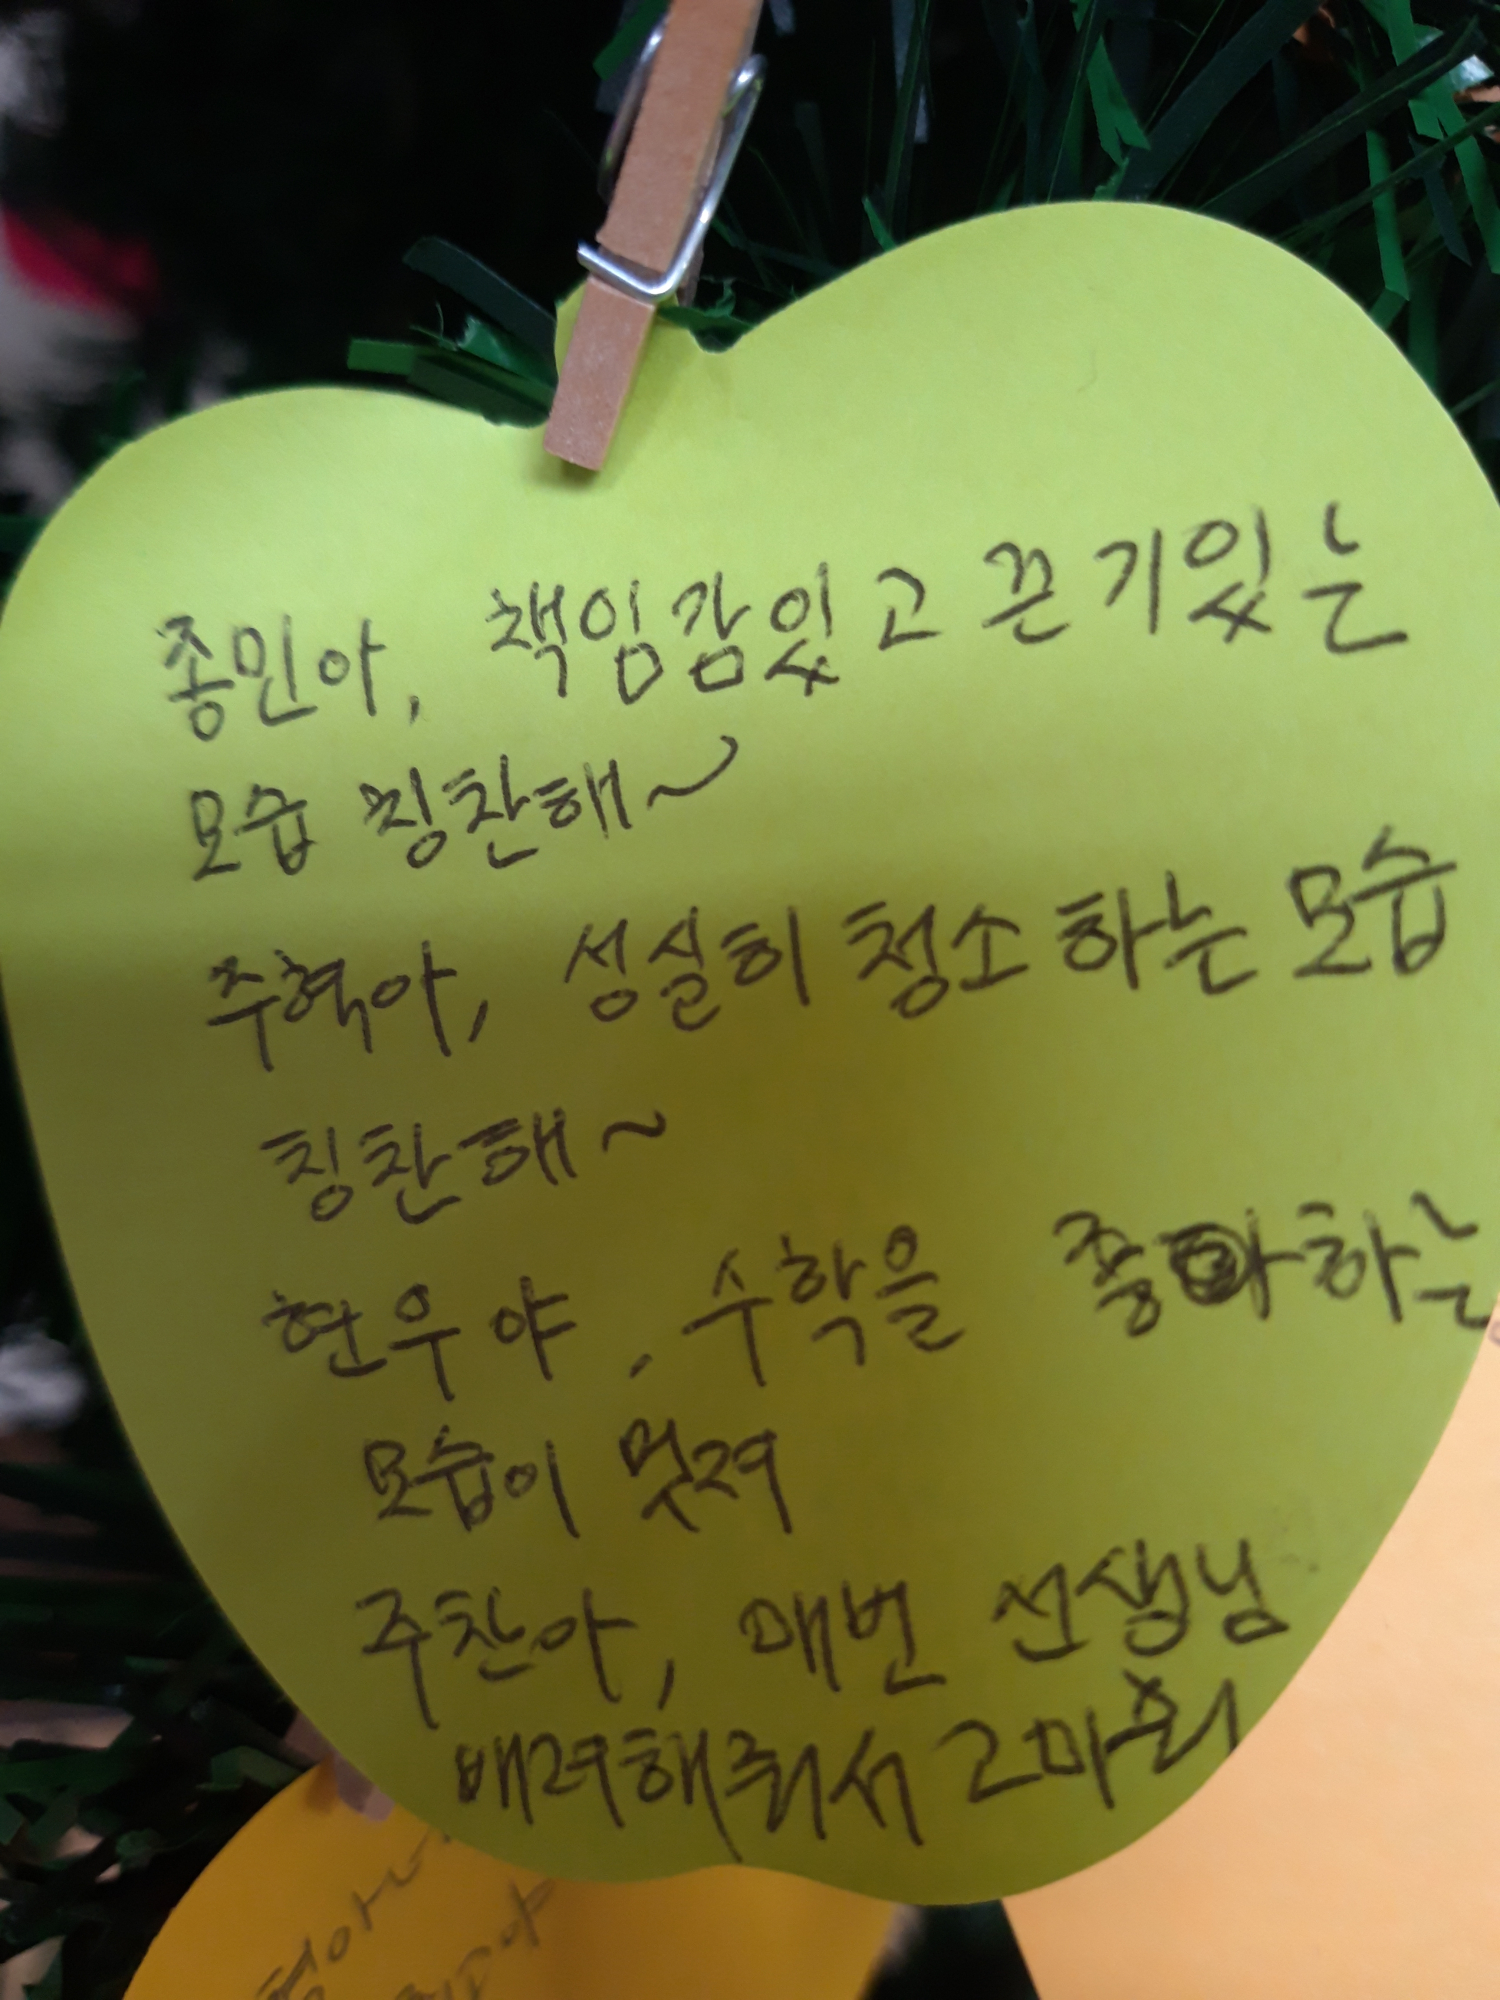 종민아, 책임감있고 끈기있는
모습 칭찬해~
주혁아, 성실히 청소하는 모습
칭찬해~
현우야, 수학을 좋아하는
모습이 멋져
주찬아, 매번 선생님
배려해줘서 고마워